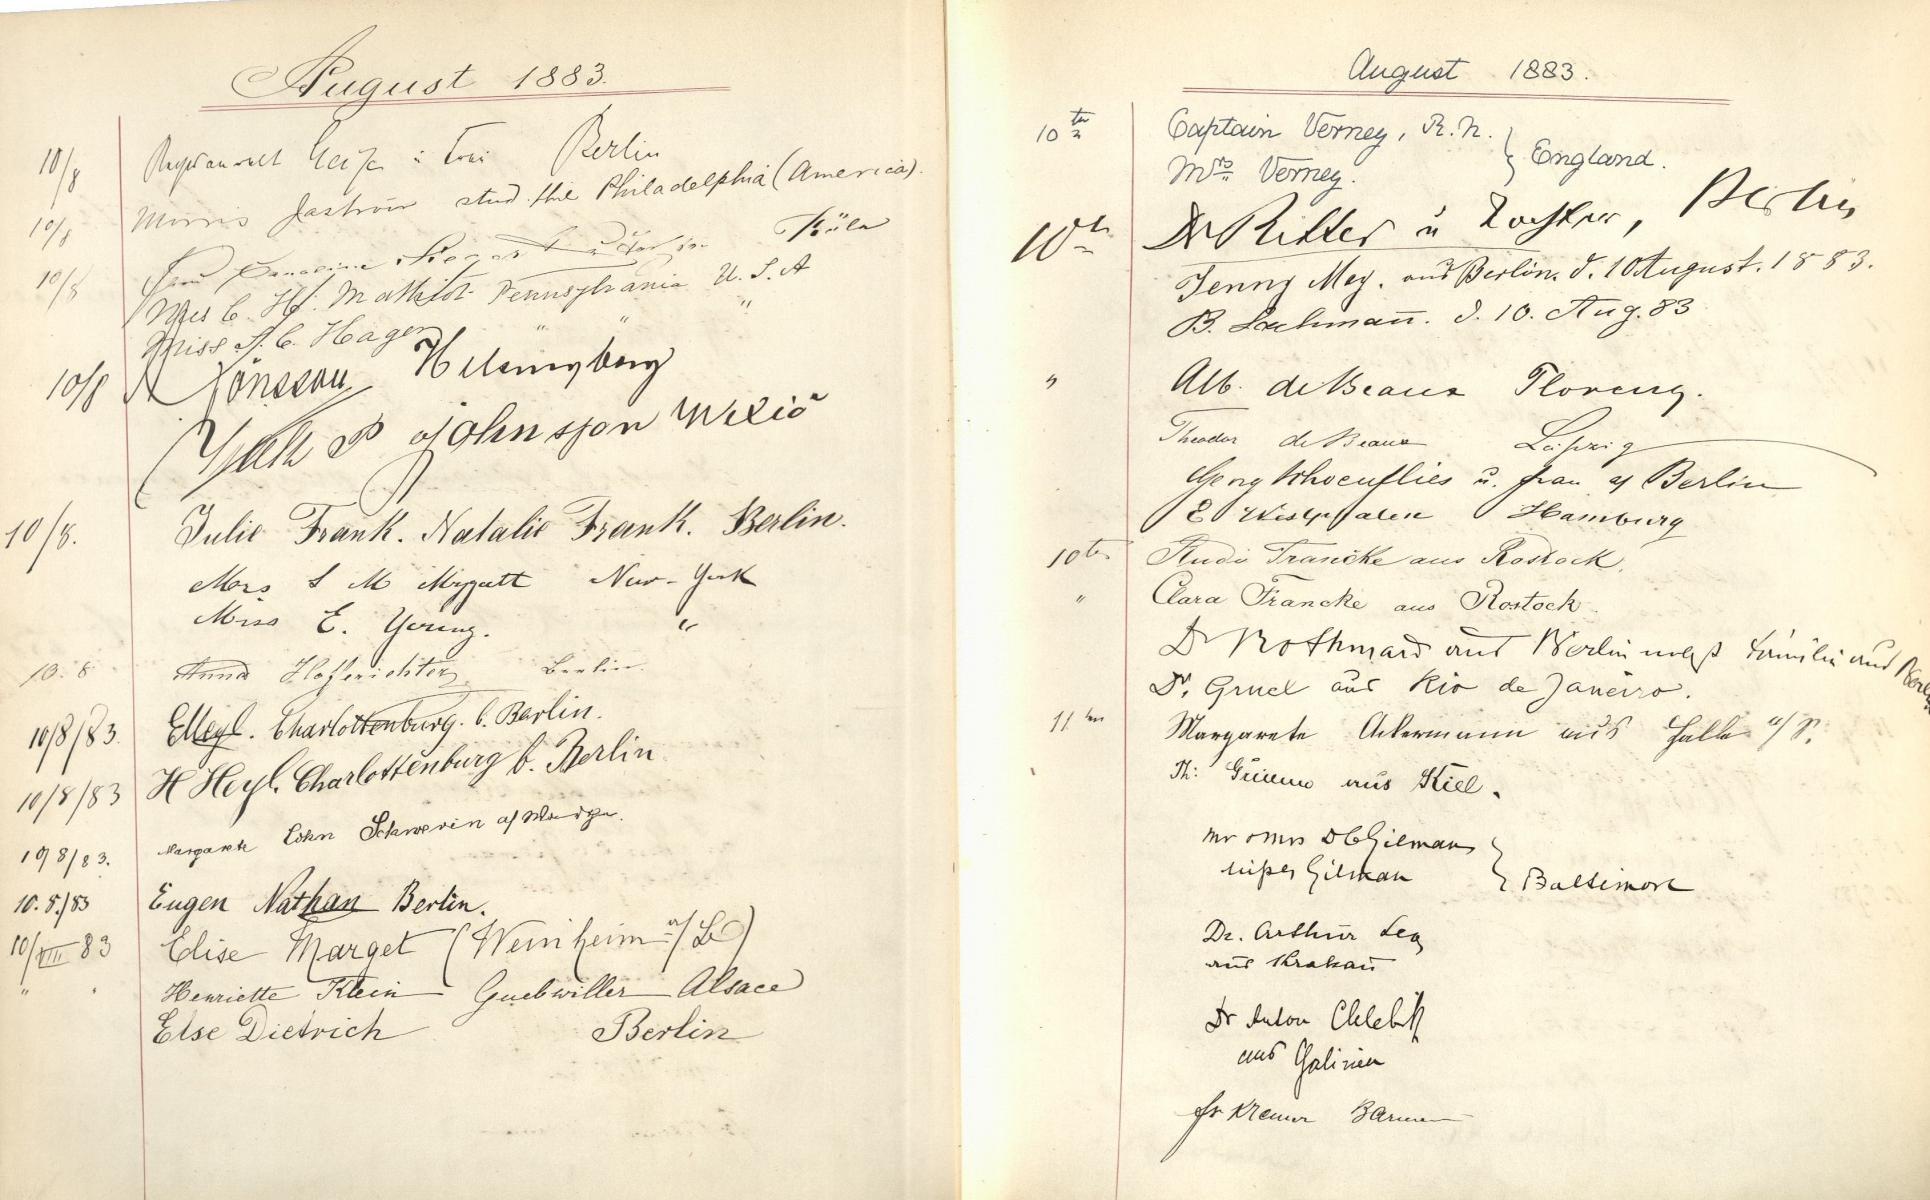 August 1883.
10/8 Berlin
10/8 Morris Jastrow stud. phil Philadelphia (America).
10/8 Frau Köln
Miss C. H. Pennsylvania U. S. A
Miss A. C. Hager " " "
10/8 A Jönsson Helsingborg
P Johnsson Wexiö
10/8. Julie Frank. Natalie Frank. Berlin.
Mrs S M Mygatt New-York
Miss E. Young. "
10. 8 Anna Hoferichter Berlin.
10/8/83. E Heyl. Charlottenburg. b. Berlin.
10/8/83 H Heyl. Charlottenburg b. Berlin
10/8/83. Margarete Cohn Schwerin a/
10.8./83 Eugen Nathan Berlin.
10/VIII 83 Elise Marget (Weinheim a/B)
" " Henriette Klein Guebwiller Alsace
Else Dietrich Berlin
August 1883.
10ten Captain Verney, R.N. } England.
Mrs Verney.
10th Dr Ritter u Tochter, Berlin
Jenny Mey. aus Berlin. d. 10 August. 1883.
B. Lachmann. d. 10. Aug. 83
" Alb. de Beaux Florenz.
Theodor de Beaux Leipzig
Georg Schoenflies u. Frau a/ Berlin
E Westphalen Hamburg
10ten Francke aus Rostock.
" Clara Francke aus Rostock.
Dr aus Berlin nebst Familie aus Berlin
Dr. Gruel aus Rio de Janeiro.
11ten Margarete Ackermann aus Halle a/S.
Th: aus Kiel.
Mr & Mrs D C Gilman } Baltimore
Misses Gilman
Dr. Arthur
aus Krakau
Dr Anton Chlebik
aus Galizien
Fr Kremer Barmen